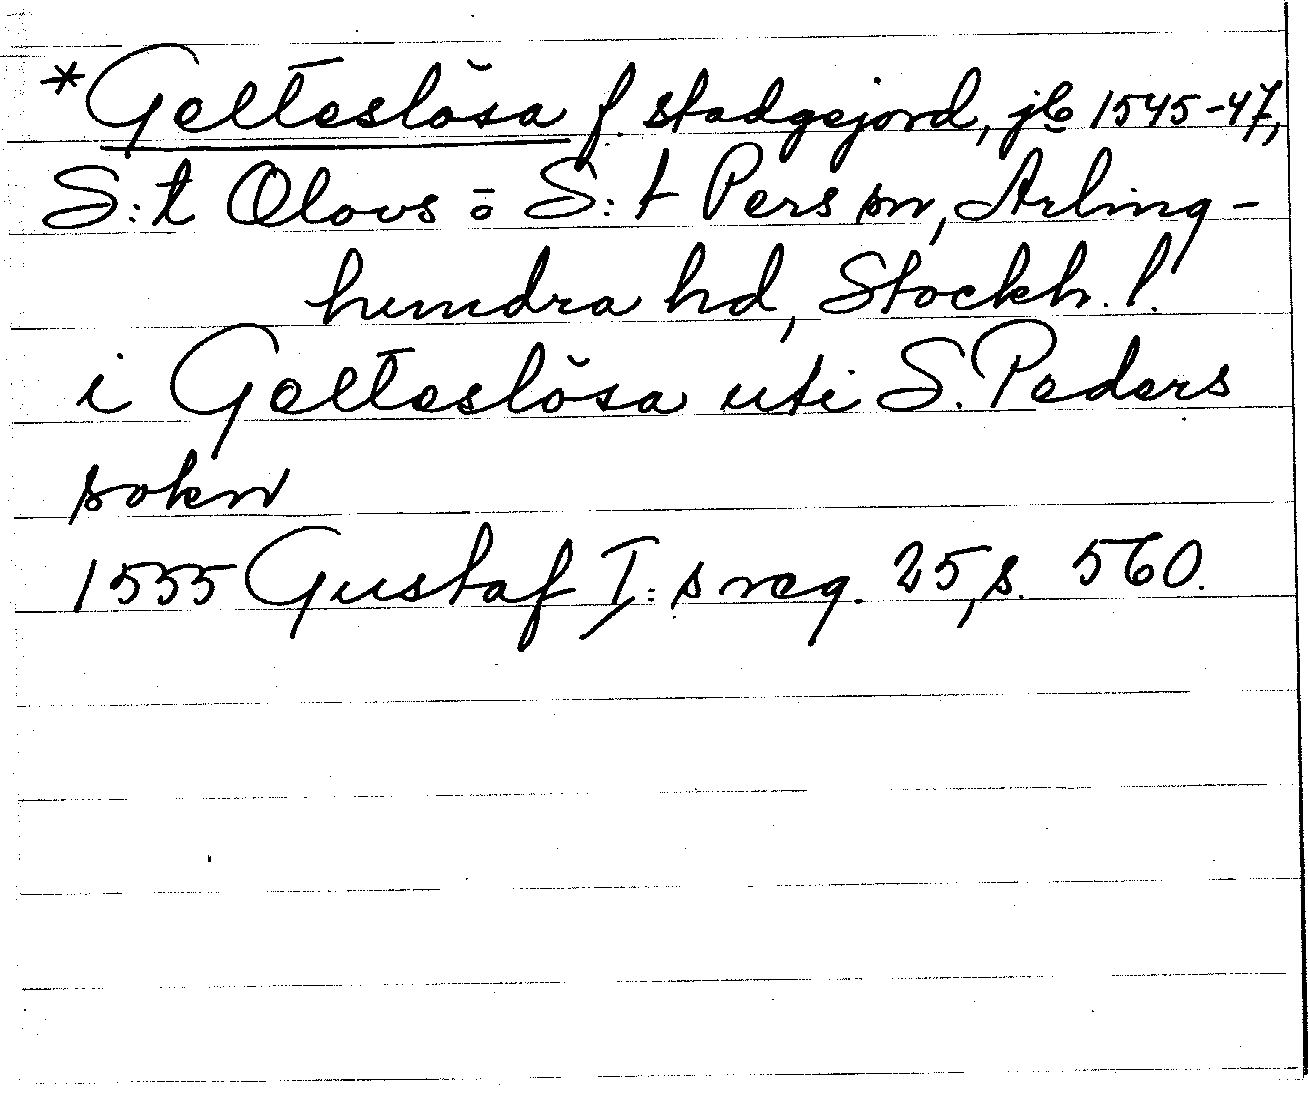 *Gelteslösa f. stadgejord, jb 1545-47,
S:t Olovs = S:t Pers sn, Arling-
hundra hd, Stockh. l.
i Gelteslösa uti S. Peders
sokn
1555 Gustaf I:s reg. 25, s. 560.